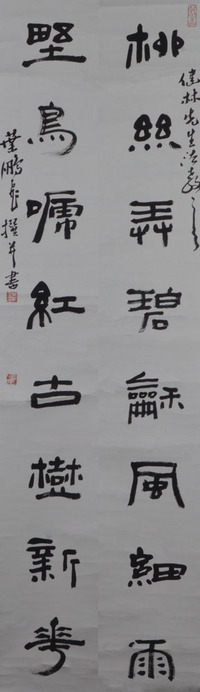 健林先生法教之
柳絲弄碧龢風細雨
野鳥嗁紅古樹新華
葉鵬飛撰并書